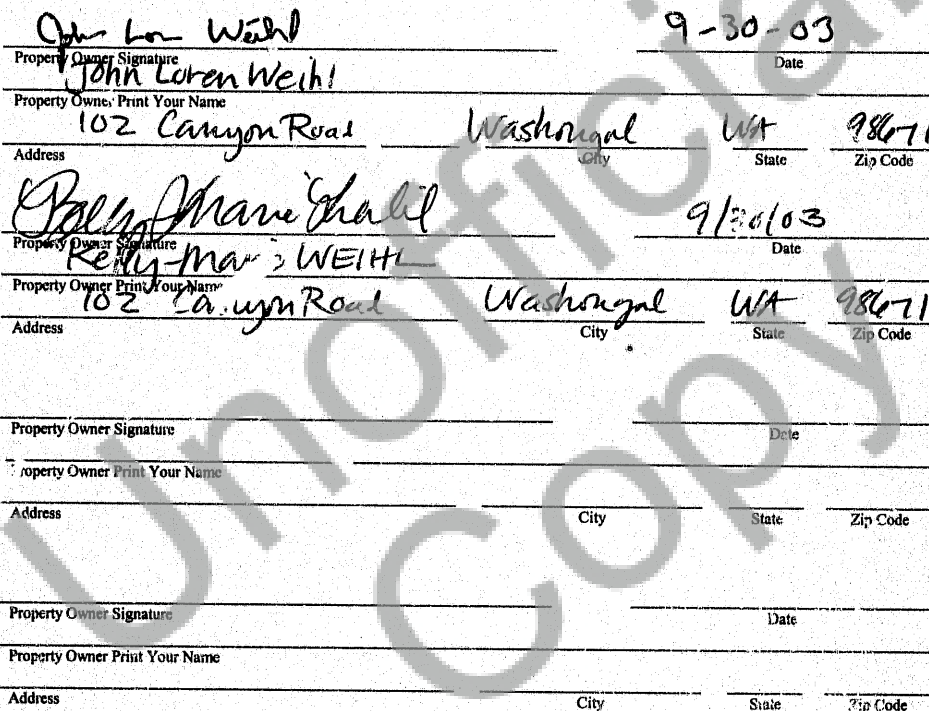 John Loren Weihl 9-30-03
Property Owner Signature Date
John Loren Weihl
Property Owner Print Your Name
102 Canyon Road Washougal WA 98671
Address City State Zip Code
9/30/03
Property Owner Signature Date
Kelly-Marie WEIHL
Property Owner Print Your Name
102 Canyon Road Washougal WA 98671
Address City State Zip Code
Property Owner Signature Date
Property Owner Print Your Name
Address City State Zip Code
Property Owner Signature Date
Property Owner Print Your Name
Address City State Zip Code
Unofficial
Copy